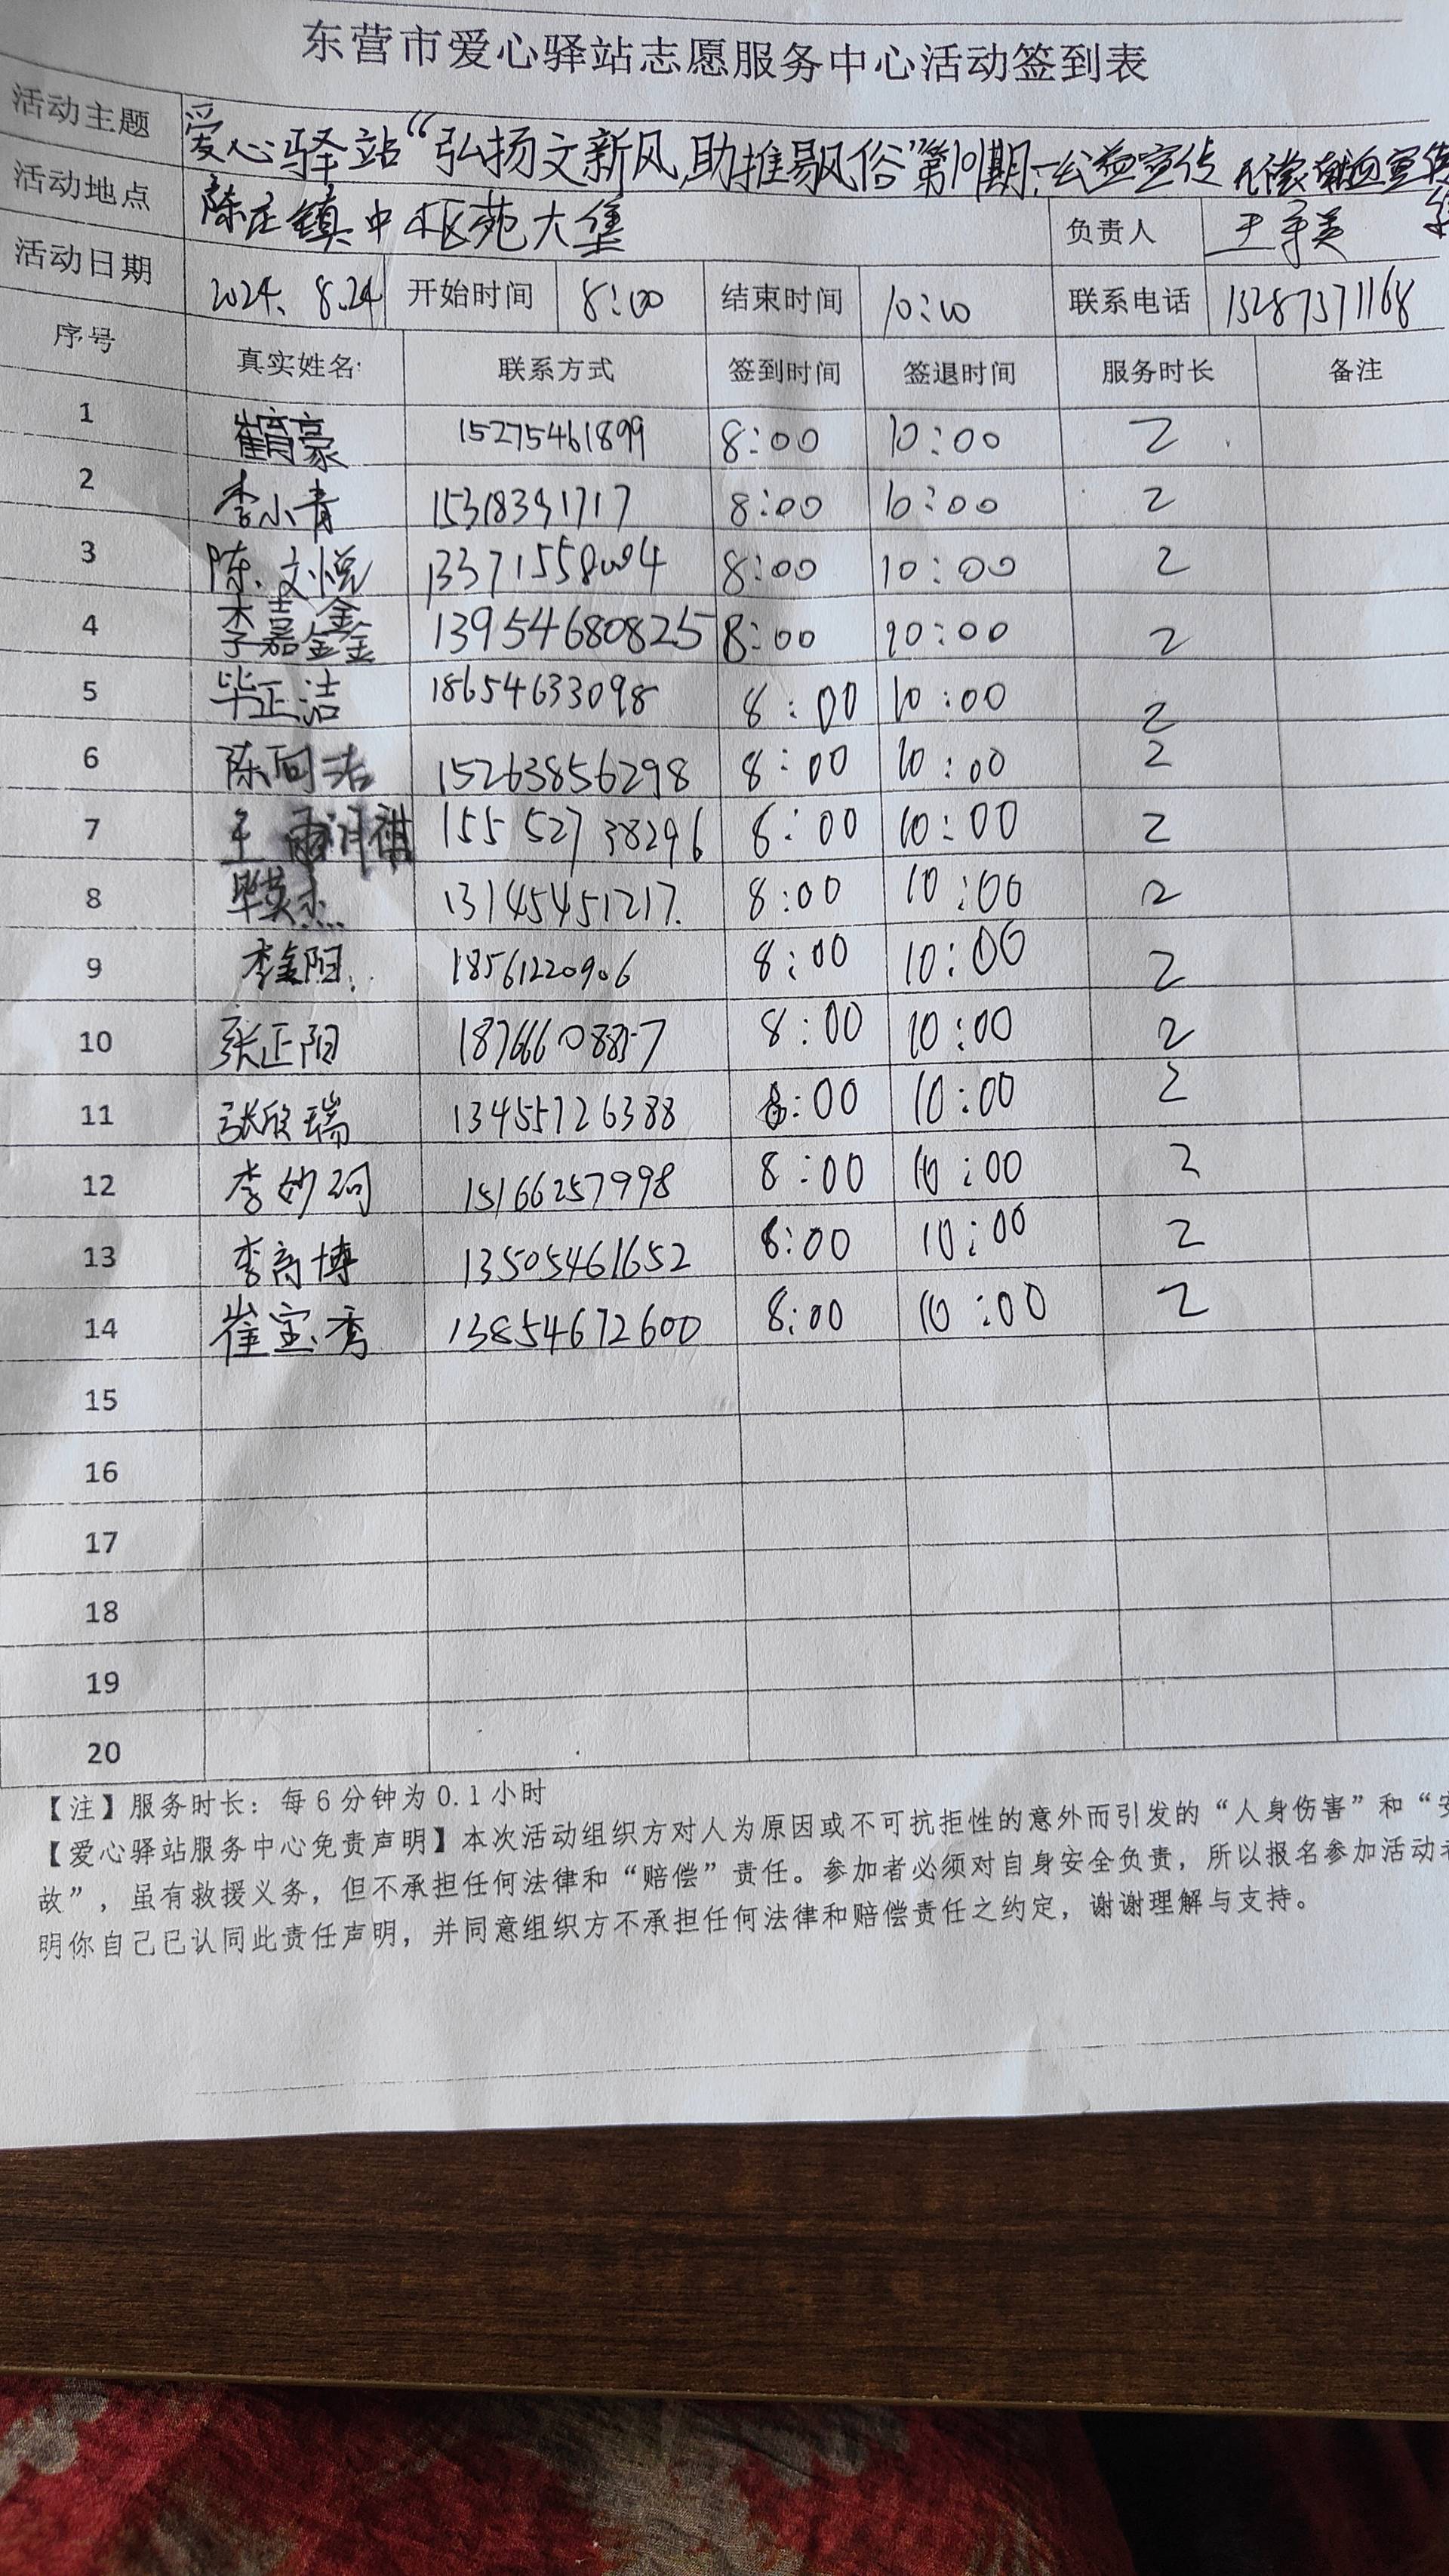 东营市爱心驿站志愿服务中心活动签到表
活动主题 爱心驿站“弘扬文新风,助推易风俗”第101期—公益宣传 无偿献血宣传
活动地点 陈庄镇中心枢苑大集 负责人
活动日期 2024、8.24 开始时间 8:00 结束时间 10:00 联系电话 15287371168
序号 真实姓名: 联系方式 签到时间 签退时间 服务时长 备注
1 崔育豪 15275461899 8:00 10:00 2
2 李小青 15318391717 8:00 10:00 2
3 陈文悦 8:00 10:00 2
4 李嘉鑫 13954680825 8:00 10:00 2
5 毕正洁 18654633098 8:00 10:00 2
6 15263856298 8:00 10:00 2
7 王 155 527 38296 8:00 10:00 2
8 毕英杰 13145451217. 8:00 10:00 2
9 李金阳 18561220906 8:00 10:00 2
10 张正阳 8:00 10:00 2
11 张欣瑞 13455726388 8:00 10:00 2
12 李妙珂 15166257998 8:00 10:00 2
13 李高博 13505461652 8:00 10:00 2
14 崔宝秀 13854672600 8:00 10:00 2
15
16
17
18
19
20
【注】服务时长：每6分钟为0.1小时
【爱心驿站服务中心免责声明】本次活动组织方对人为原因或不可抗拒性的意外而引发的“人身伤害”和“安
故”，虽有救援义务，但不承担任何法律和“赔偿”责任。参加者必须对自身安全负责，所以报名参加活动者
明你自己已认同此责任声明，并同意组织方不承担任何法律和赔偿责任之约定，谢谢理解与支持。